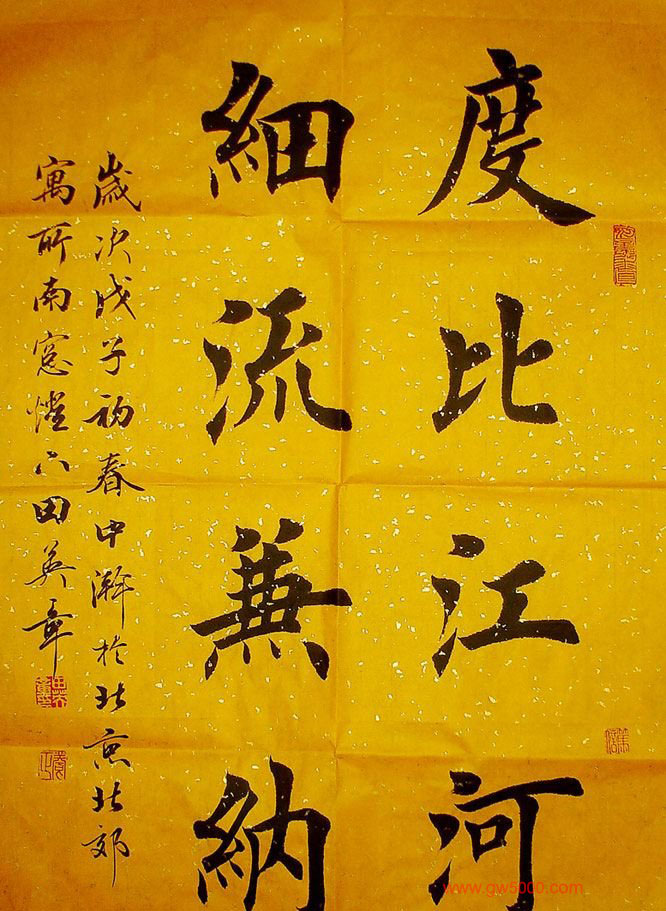 度比江河
細流兼納
歲次戊子初春中澣於北京北郊
寓所南窓燈下田英章
www.gw5000.com